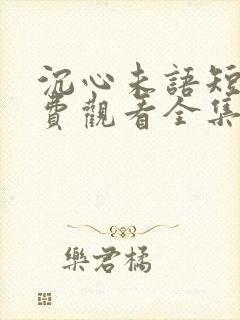 沉心未語短
費觀看全集
樂君橘